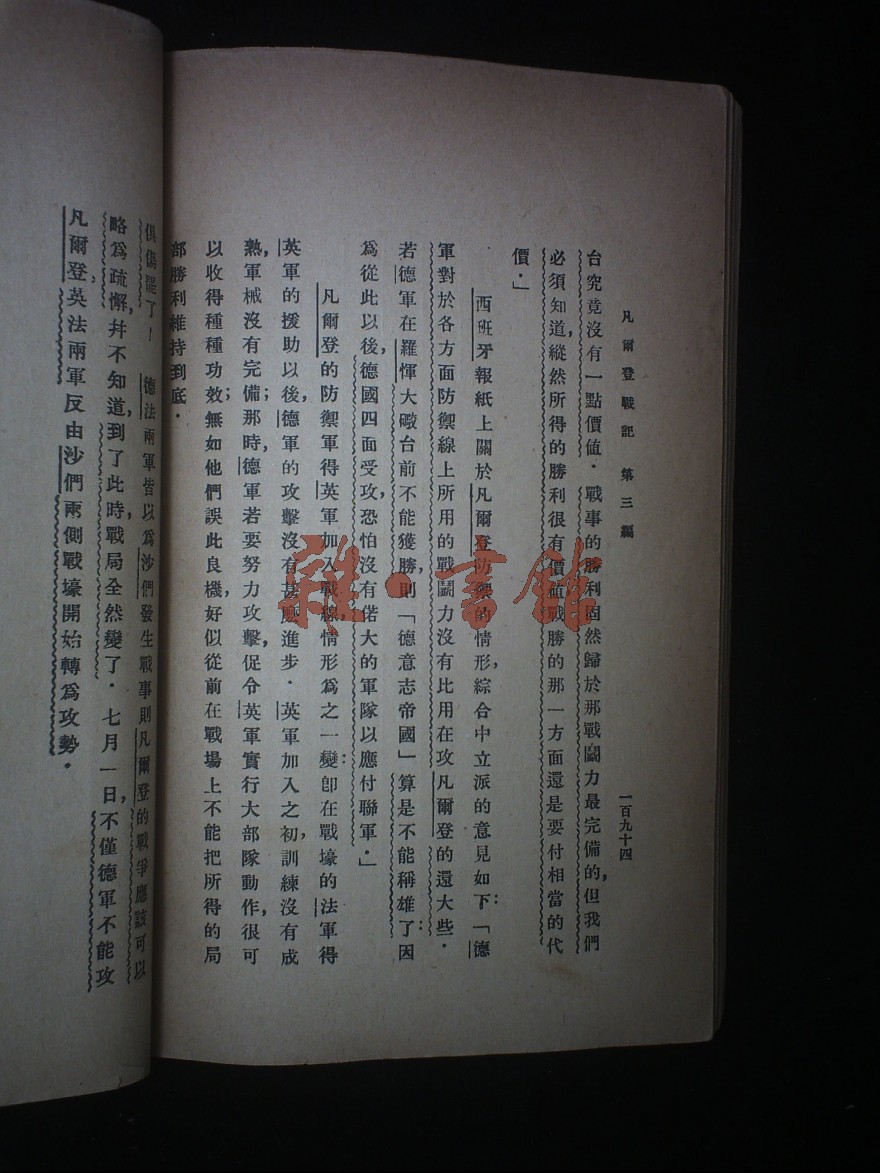 凡爾登戰記 第三編
一百九十四
台究竟沒有一點價値．戰事的勝利固然歸於那戰鬭力最完備的，但我們
必須知道，縱然所得的勝利很有價値，戰勝的那一方面還是要付相當的代
價．」
西班牙報紙上關於凡爾登防禦的情形，綜合中立派的意見如下：「德
軍對於各方面防禦線上所用的戰鬭力沒有比用在攻凡爾登的還大些．
若德軍在羅惲大礮台前不能獲勝，則「德意志帝國」算是不能稱雄了：因
爲從此以後，德國四面受攻，恐怕沒有偌大的軍隊以應付聯軍．」
凡爾登的防禦軍得英軍加入戰線，情形爲之一變：卽在戰壕的法軍得
英軍的援助以後，德軍的攻擊沒有甚麽進步．英軍加入之初，訓練沒有成
熟，軍械沒有完備；那時，德軍若要努力攻擊，促令英軍實行大部隊動作，很可
以收得種種功效；無如他們誤此良機，好似從前在戰場上不能把所得的局
部勝利維持到底．
俱傷罷了！德法兩軍皆以爲沙們發生戰事則凡爾登的戰爭應該可以
略爲疏懈，幷不知道，到了此時，戰局全然變了．七月一日，不僅德軍不能攻
凡爾登，英法兩軍反由沙們兩側戰壕開始轉爲攻勢．
雜·書館